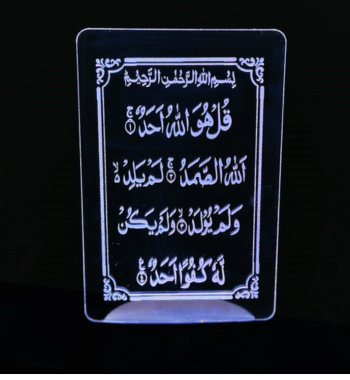 بِسْمِ اللهِ الرَّحْمٰنِ الرَّحِيْمِ
قُلْ هُوَ اللهُ اَحَدٌ ۝١
اَللهُ الصَّمَدُ ۝٢ لَمْ يَلِدْ ۙ
وَلَمْ يُوْلَدْ ۝٣ وَلَمْ يَكُنْ
لَّهٗ كُفُوًا اَحَدٌ ۝٤